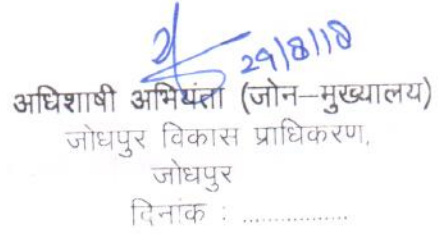 29/8/18
अधिशाषी अभियंता (जोन–मुख्यालय)
जोधपुर विकास प्राधिकरण,
जोधपुर
दिनांक : ..................